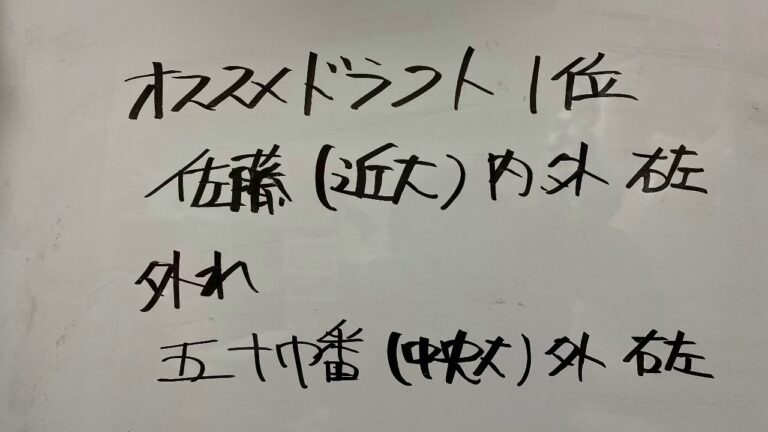 オススメドラフト1位
佐藤(近大)内外 右左
外れ
五十幡(中央大)外 右左